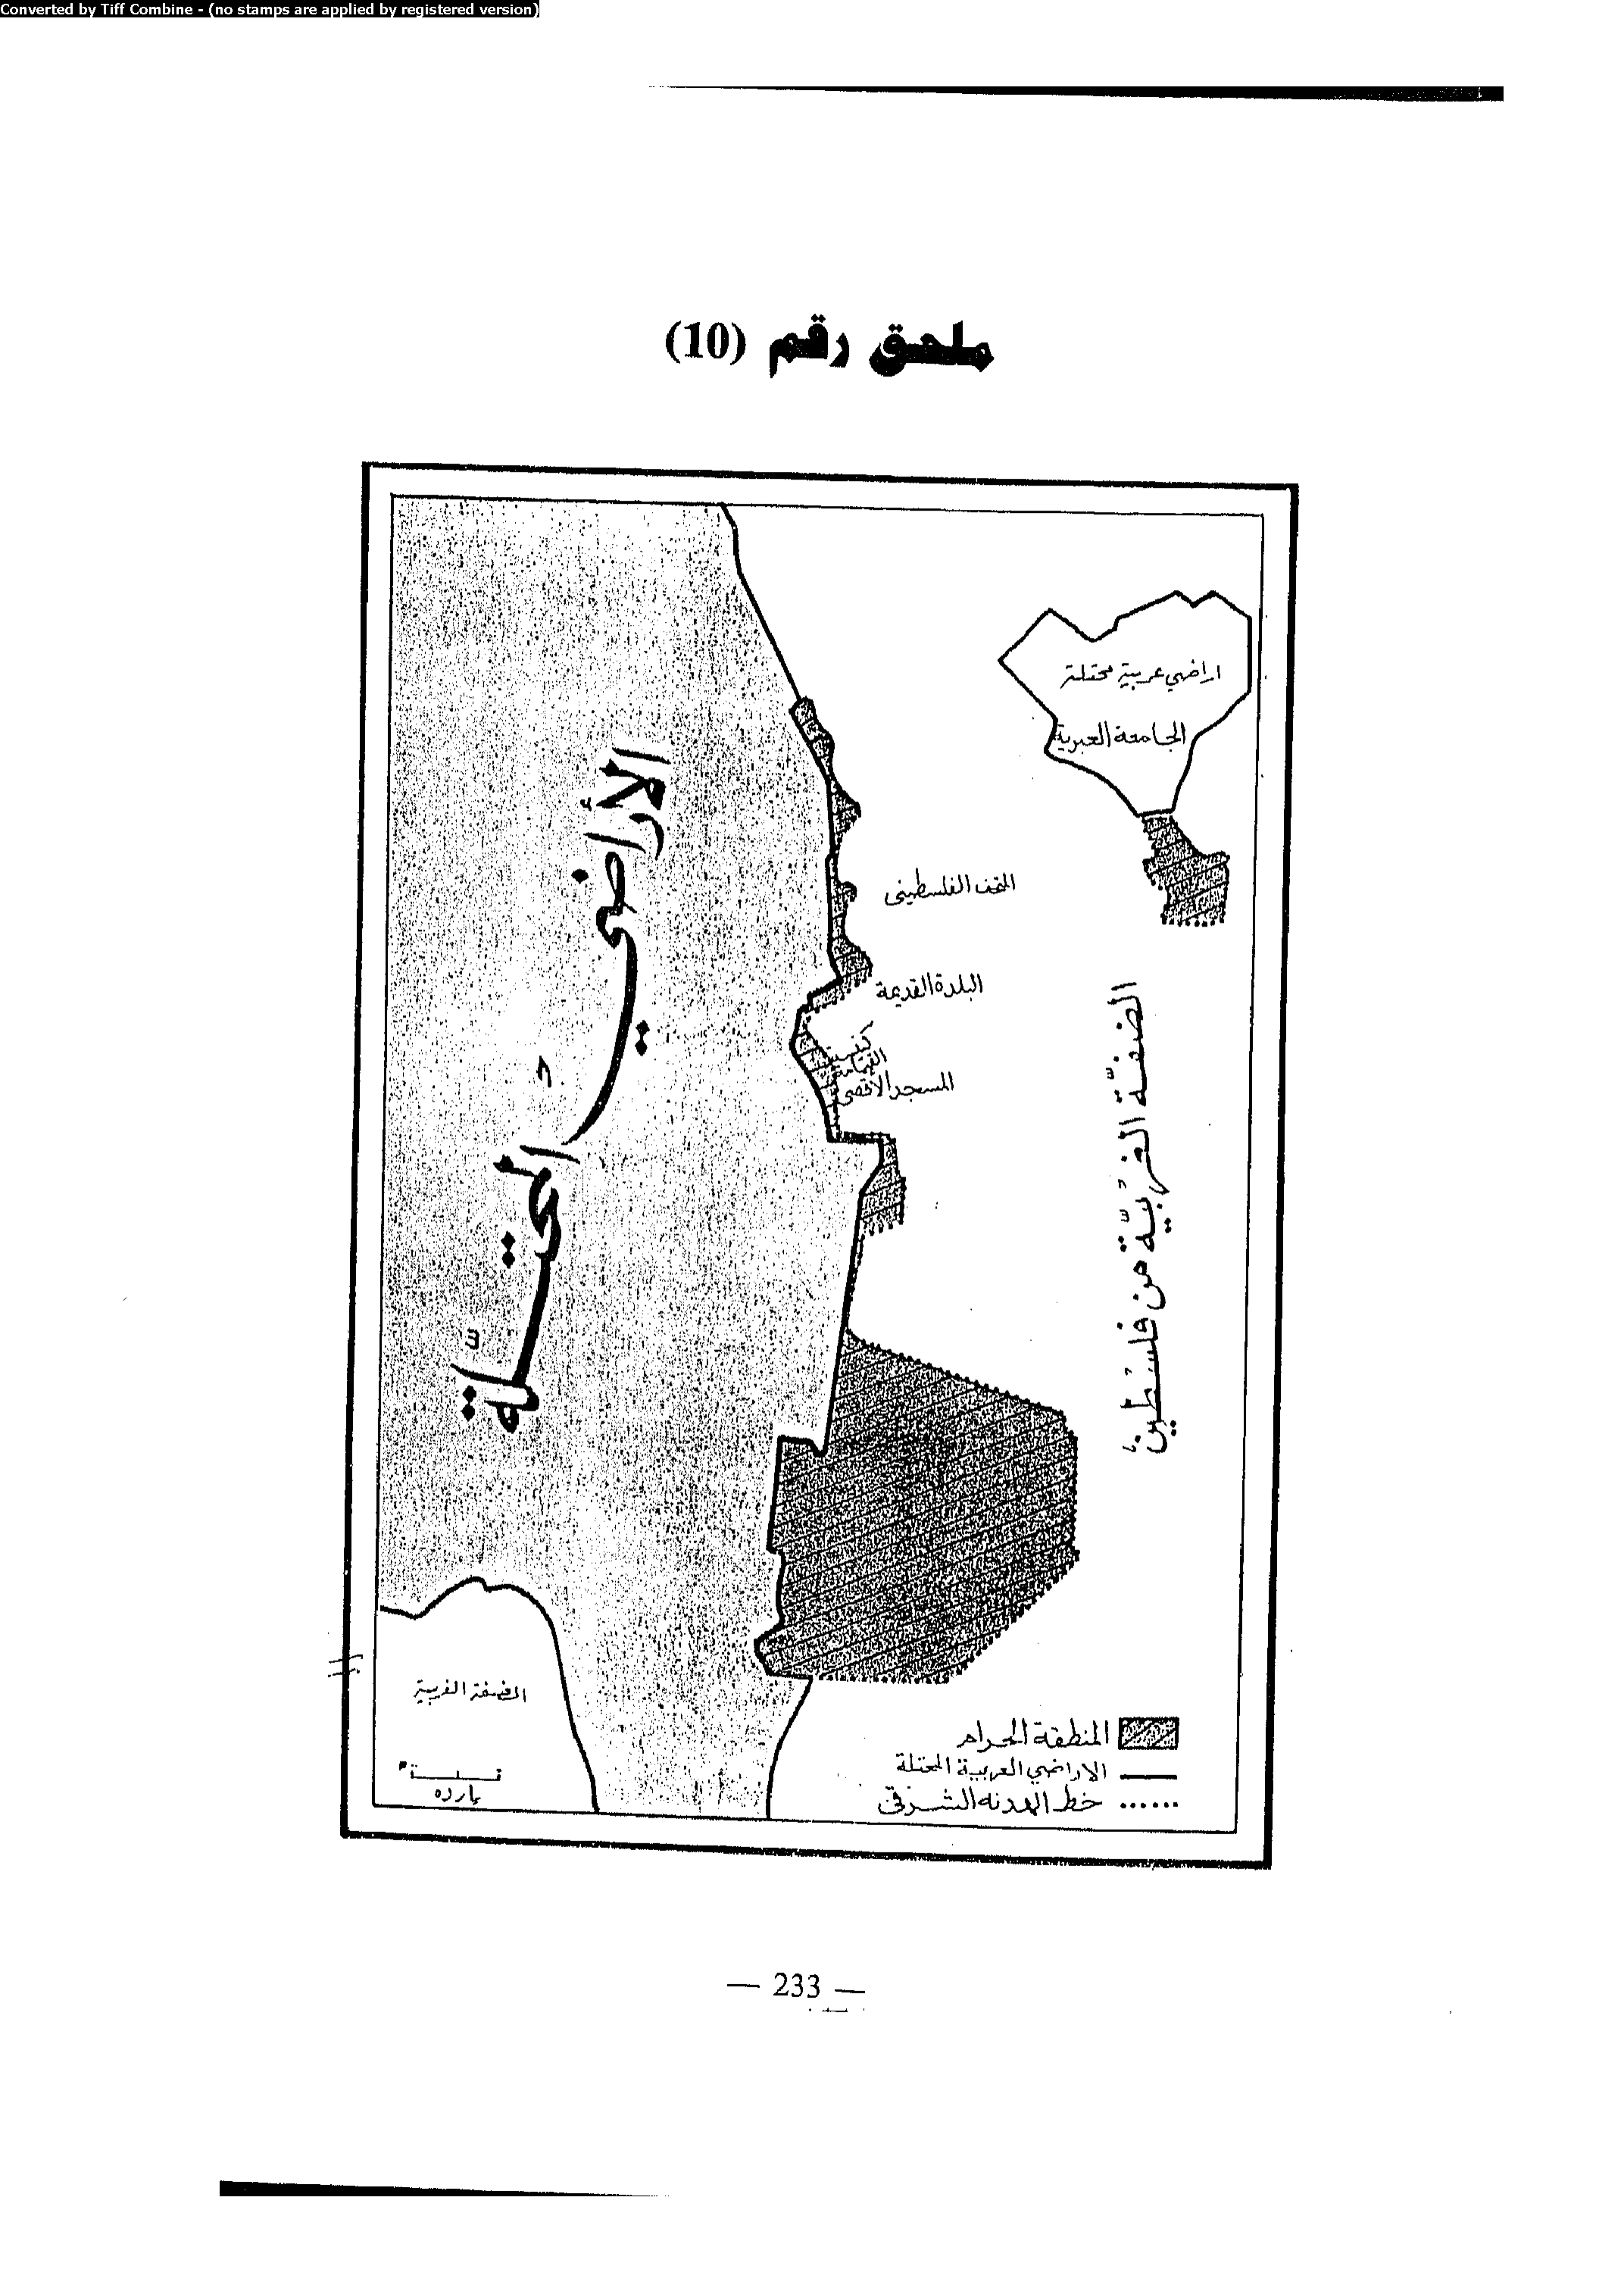 Converted by Tiff Combine - (no stamps are applied by registered version)
ملحق رقم (10)
اراضي عربية محتلة
الجامعة العبرية
المتحف الفلسطيني
البلدة القديمة
كنيسة
القيامة
المسجد الاقصى
الأراضي المحتلة
الضفة الغربية من فلسطين
الضفة الغربية
يارده
المنطقة الحرام
الاراضي العربية المحتلة
خط الهدنه الشرقي
— 233 —